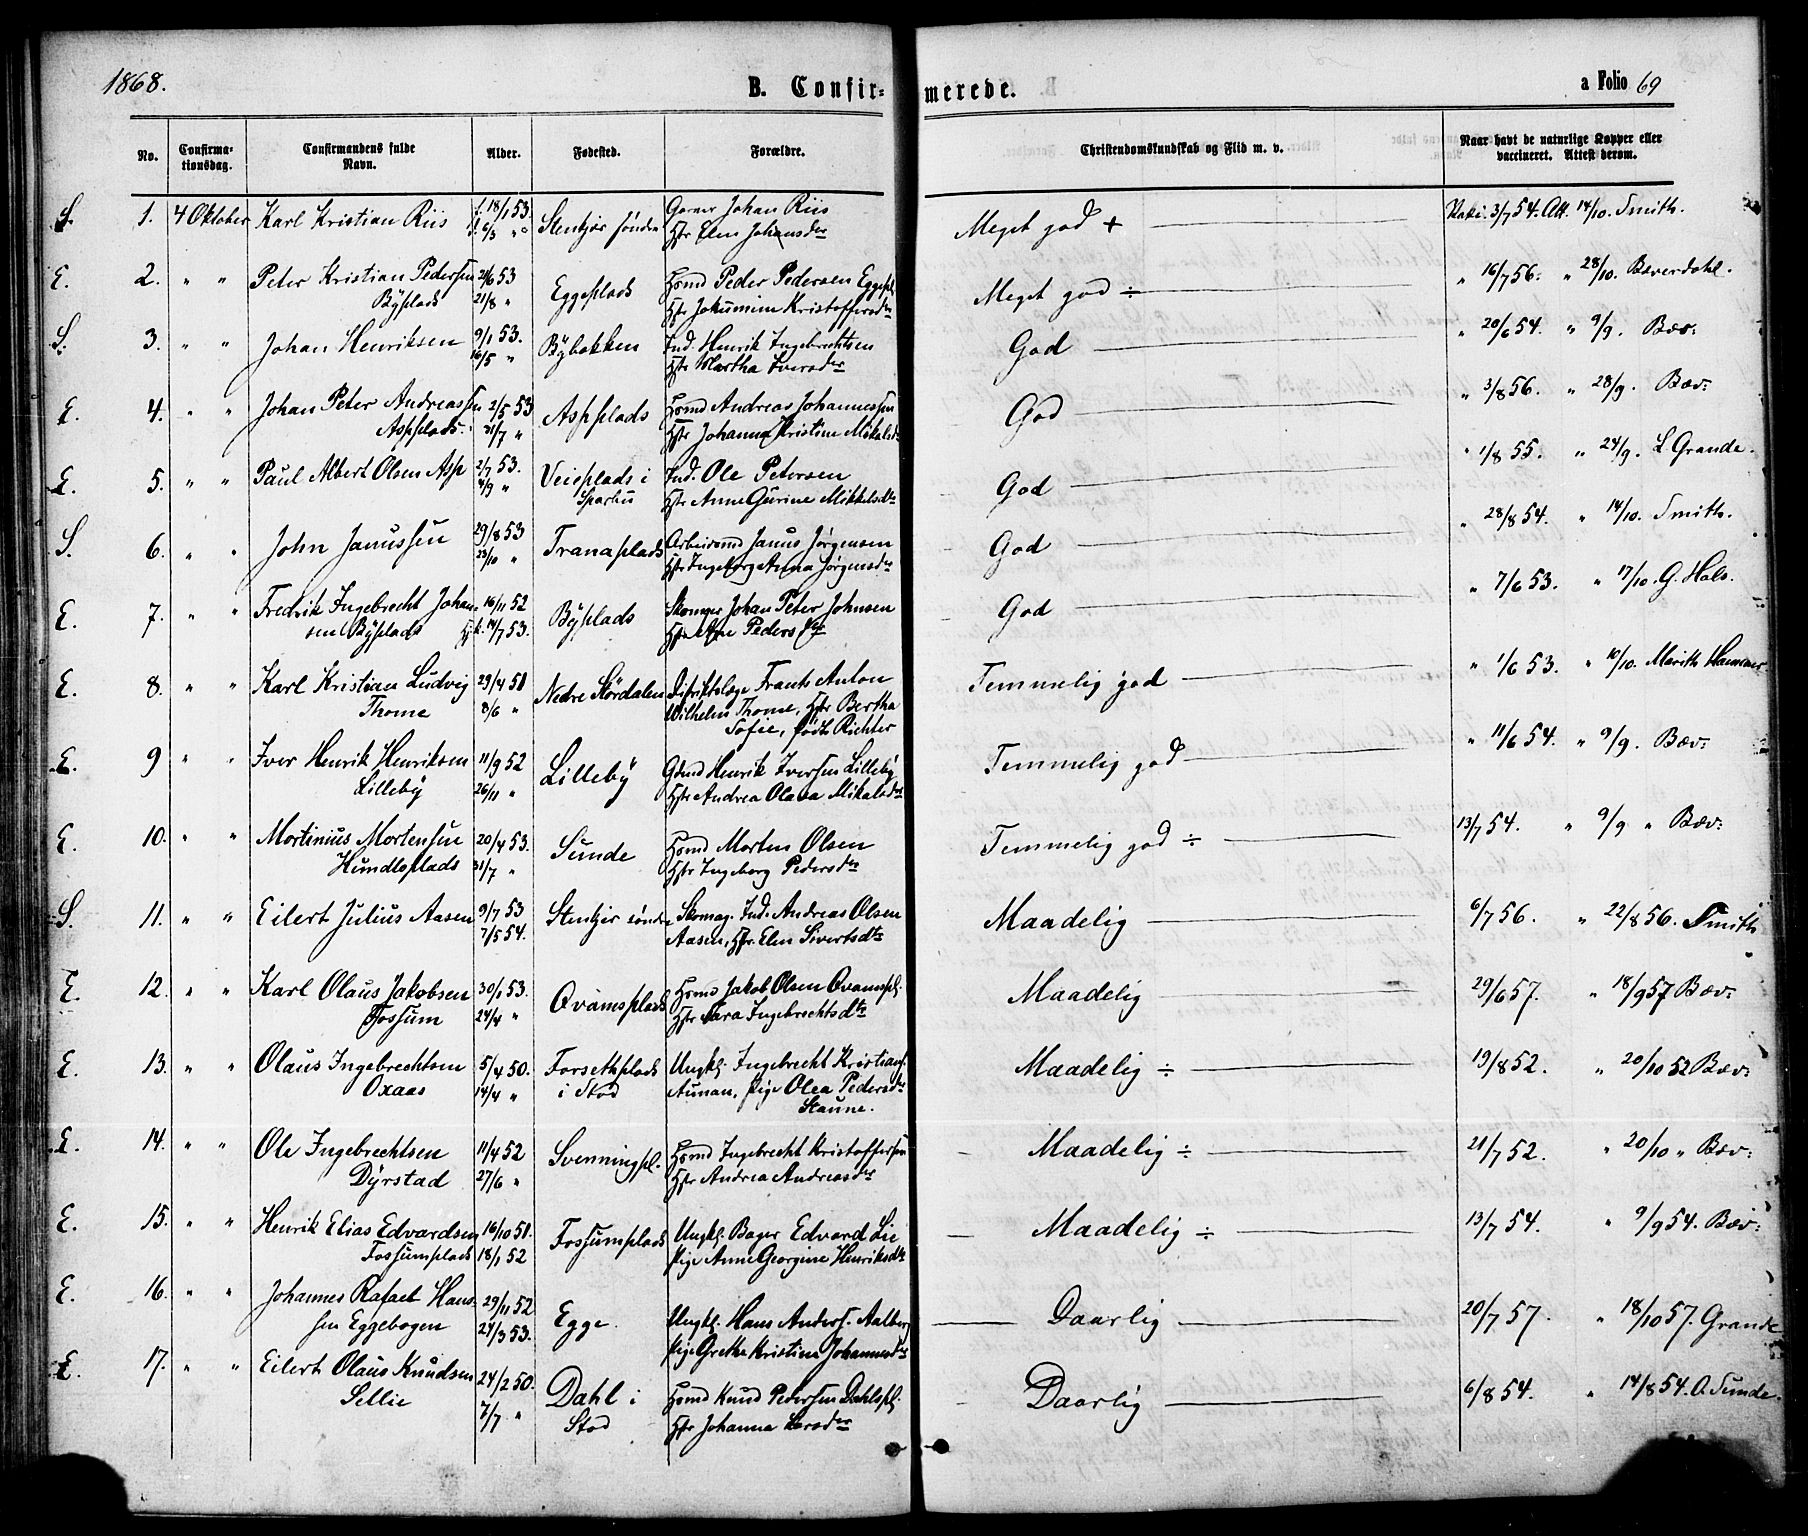 1868.
B. Confir-
merede.
a Folio 69
No.
Confirma-
tionsdag.
Confirmandens fulde
Navn.
Alder.
Fødested.
Forældre.
Christendomskundskab og Flid m. v.
Naar havt de naturlige Kopper eller
vaccineret. Attest derom.
S. 1. 4 Oktober Karl Kristian Riis f. 18/1 53. Stenkjør søndre Garver Johan Riis Meget god + 3/7 54. Att. 14/10. Smith.
6/3 " Hstr Elen Johansdtr
E. 2. " " Peter Kristian Pedersen 21/6 53 Eggeplads Hsmd Peder Pedersen Eggepl. Meget god ÷ " 16/7 56. " 28/10. Bæverdahl.
Byplads 21/8 " Hstr Jokumine Kristoffersdtr
S. 3. " " Johan Henriksen 9/1 53. Bybakken Ind. Henrik Ingebrechtsen God " 20/6 54. " 9/9. Bæv:
16/5 " Hstr Martha Iversdtr
E. 4. " " Johan Peter Andreassen 2/5 53 Aspplads Hsmd Andreas Johannessen God " 3/8 56. " 28/9. Bæv:
Aspplads. 21/7 " Hstr Johanna Kristine Mikalsd
E. 5. " " Paul Albert Olsen Asp 2/7 53. Veieplads i Ind. Ole Petersen God " 1/8 55. " 24/9. L Grande.
4/9 " Sparbu Hstr Anne Gurine Mikkelsdtr
S. 6. " " John Janussen 29/8 53 Tranaplads Arbeidsmd Janus Jørgensen God " 28/8 54. " 14/10. Smith.
23/10 " Hstr Ingeborg Anna Jørgensdtr
E. 7. " " Fredrik Ingebrecht Johan- 16/11 52 Byplads Skomger Johan Peter Johnsen God " 7/6 53. " 17/10. G. Hals.
sen Byplads Hj. 14/7 53. Hstr Ane Pedersdtr
E. 8. " " Karl Kristian Ludvig 29/4 51 Nedre Størdalen Distriktslæge Frants Anton Temmelig god " 1/6 53. " 10/10. Marith Hammer
Thome 8/6 " Wilhelm Thome, Hstr Bertha
Sofie, født Richter
E. 9 " " Iver Henrik Henriksen 11/9 52 Lilleby Gdmd Henrik Iversen Lilleby Temmelig god " 11/6 54. " 9/9. Bæv:
Lilleby 26/11 " Hstr Andrea Olava Mikalsdtr
E. 10. " " Mortinius Mortensen 20/4 53. Sunde Hsmd Morten Olsen Temmelig god ÷ 13/7 54. " 9/9 " Bæv:
Hundlsplads 31/7 " Hstr Ingeborg Pedersdtr
S. 11. " " Eilert Julius Aasen 9/7 53 Stenkjør søndre Skomag. Ind. Andreas Olsen Maadelig 6/7 56. " 22/8 56. Smith
7/5 54. Aasen, Hstr. Elen Sivertsdtr
E. 12. " " Karl Olaus Jakobsen 30/1 53. Qvamsplads Hsmd Jakob Olsen Qvamspl. Maadelig 29/6 57. " 18/9 57 Bæv:
Fossum 24/4 " Hstr Sara Ingebrechtsdtr
E. 13. " " Olaus Ingebrechtsen 5/4 50. Forsethplads Ungkl. Ingebrecht Kristians. Maadelig ÷ 19/8 52. " 20/10 52 Bæv:
Oxaas 14/4 " i Stod Aunan, Pige Olea Pedersdtr
Staune.
E. 14. " " Ole Ingebrechtsen 11/4 52 Svenningpl. Hsmd Ingebrecht Kristoffersen Maadelig ÷ 21/7 52. " 20/10 " Bæv:
Dyrstad 27/6 " Hstr Andrea Andreasdtr
E. 15. " " Henrik Elias Edvardsen 16/10 51. Fossumplads Ungkl. Bager Edvard Lie Maadelig ÷ 13/7 54. " 9/9 54. Bæv:
Fossumplads 18/1 52 Pige Anne Georgine Henriksdtr
E. 16. " " Johannes Rafael Hans- 29/11 52 Egge. Ungkl. Hans Anders. Aalberg Daarlig 20/7 57. " 18/10 57. Grande
sen Eggebogen 27/3 53. Pige Grethe Kristine Johannesdtr
E. 17. " " Eilert Olaus Knudsen 24/2 50. Dahl i Hsmd Knud Pedersen Dahlspl. Daarlig 6/8 54. " 14/8 54. O. Sunde.
Sellie 7/7 " Stod Hstr Johanna Larsdtr